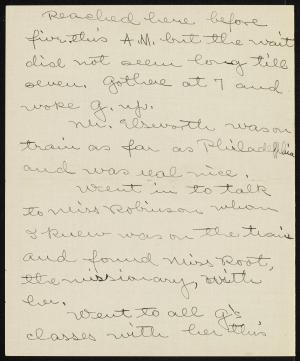 Reached here before
five this A.M. but the wait
did not seem long till
seven. Got here at 7 and
woke G. up.
Mr. Elsworth was on
train as far as Philadelphia
and was real nice.
Went in to talk
to Miss Robinson whom
I knew was on the train
and found Miss Root,
the missionary, with
her.
Went to all G's
classes with her this